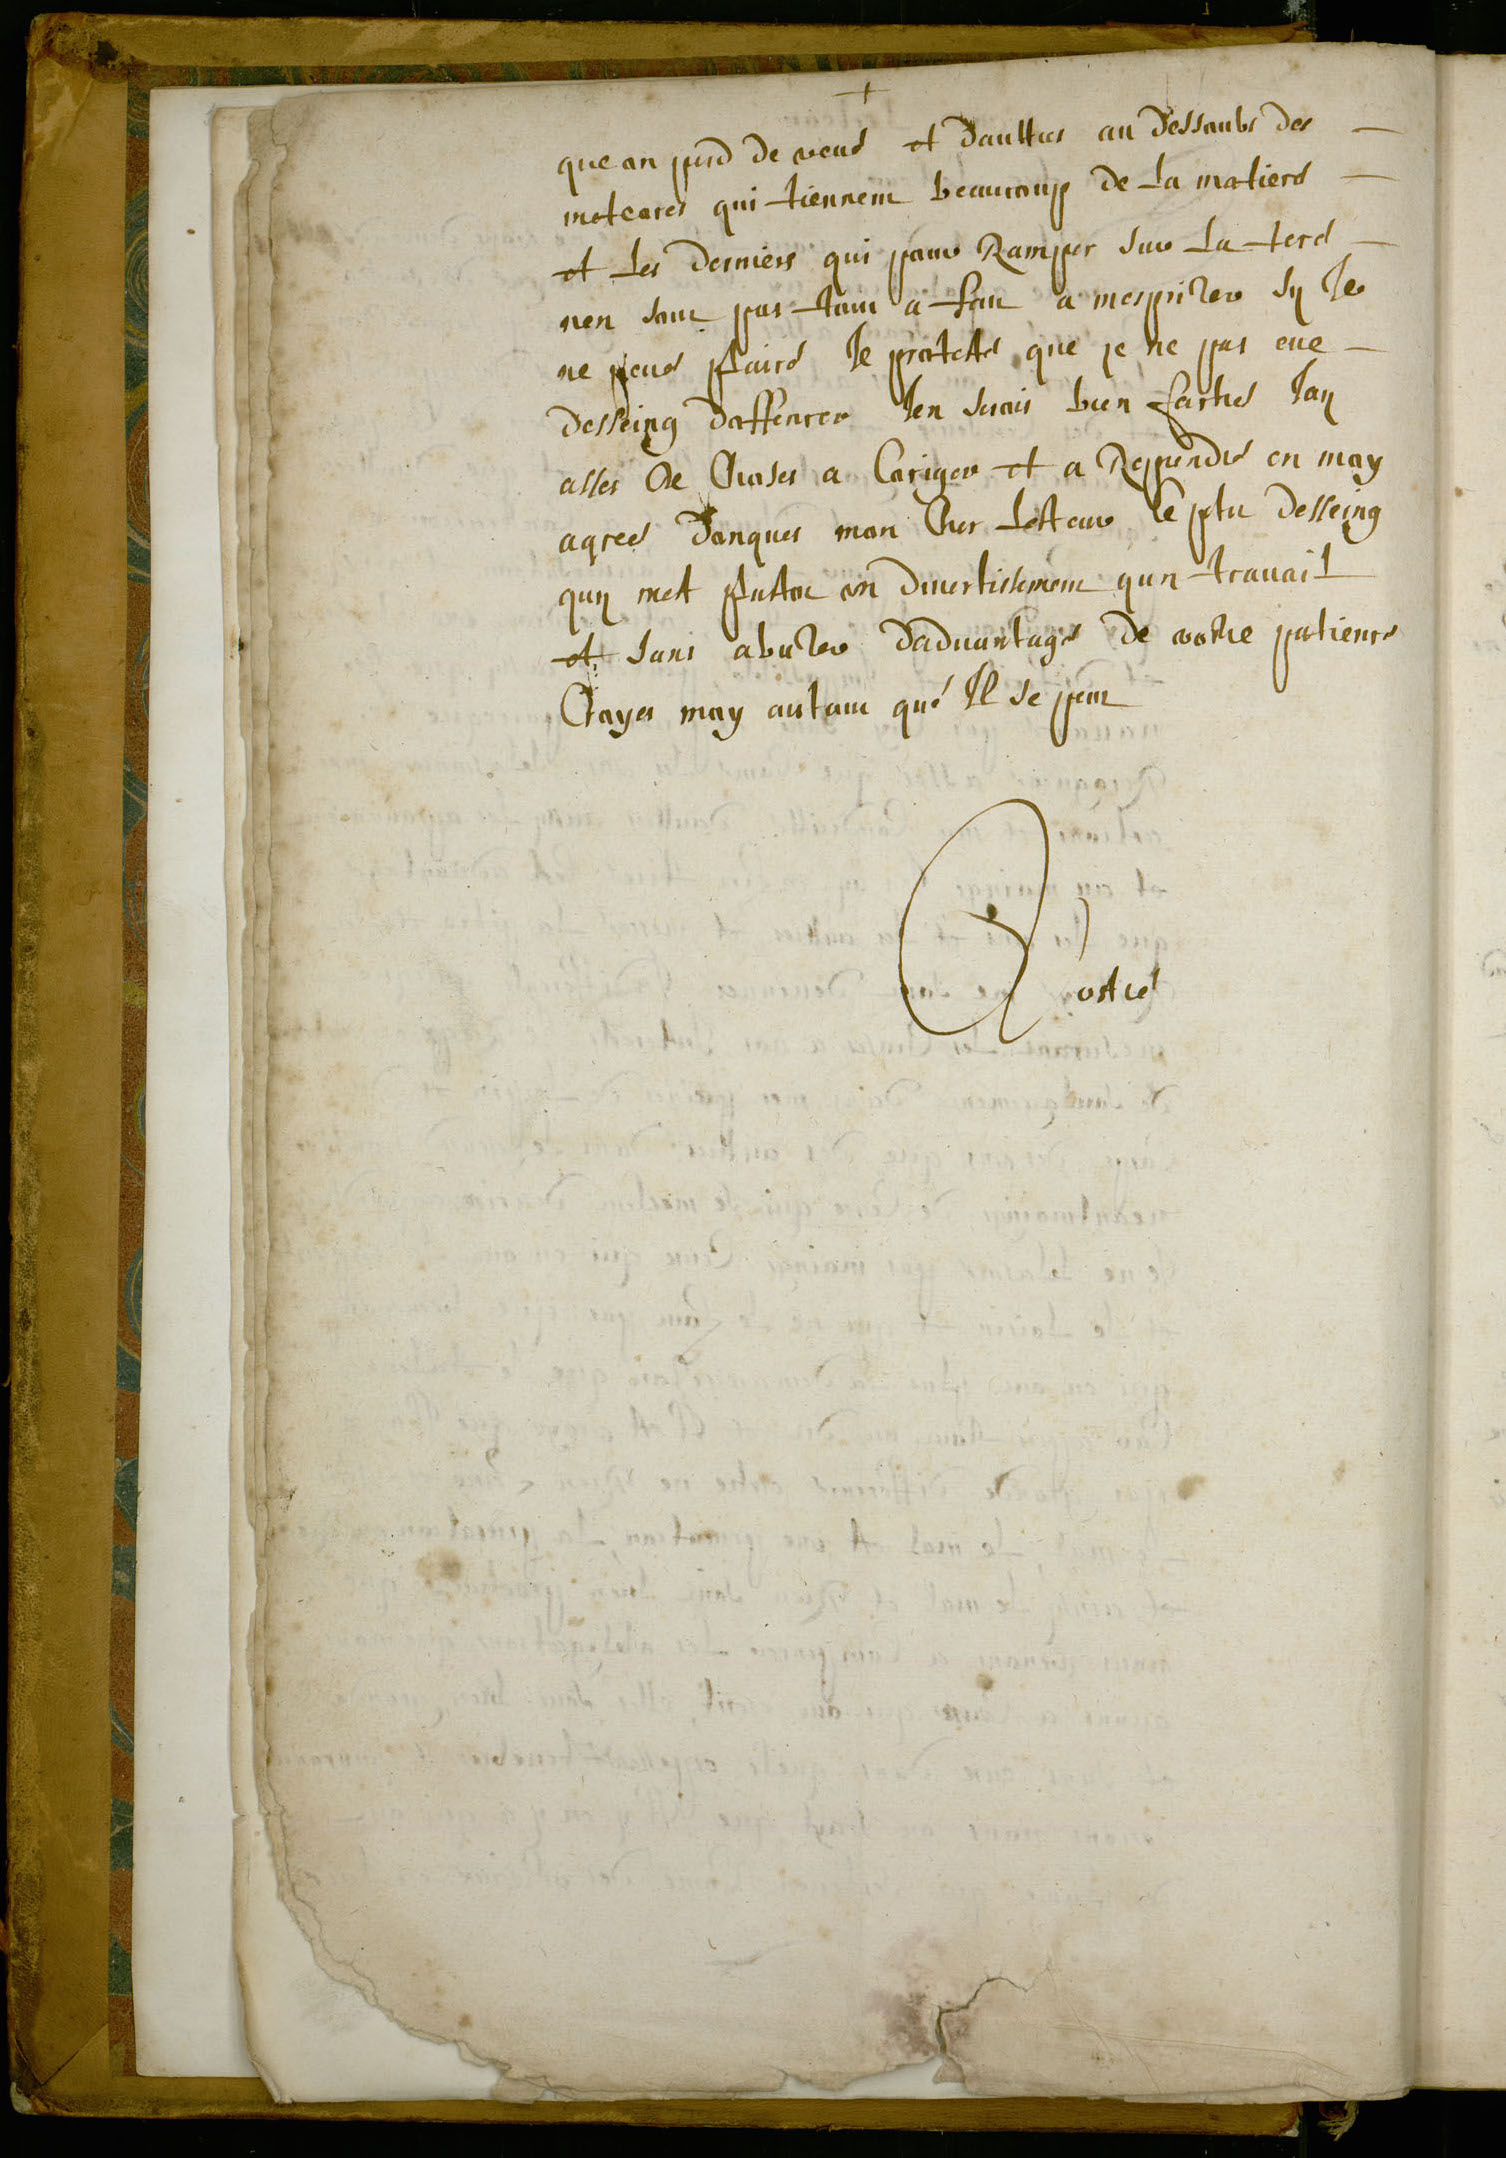 que on perd de veue et daultres au dessoubs des
meteores qui tiennent beaucoup de la matiere
et les derniers qui pour Ramper sur la tere
nen sont pas tout a fait a mespriser sy Je
ne peus plaire Je proteste que je ne pas eue
desseing doffencer Jen serais bien fachee Jay
asses de Choses a Coriger et a Reprendre en moy
agrees donques mon Cher lecteur ce petit desseing
quy mest plustot un divertissement qun travail
et sans abuser daduantage de vostre patience
Croyes moy autant que Il se peut
Vostre